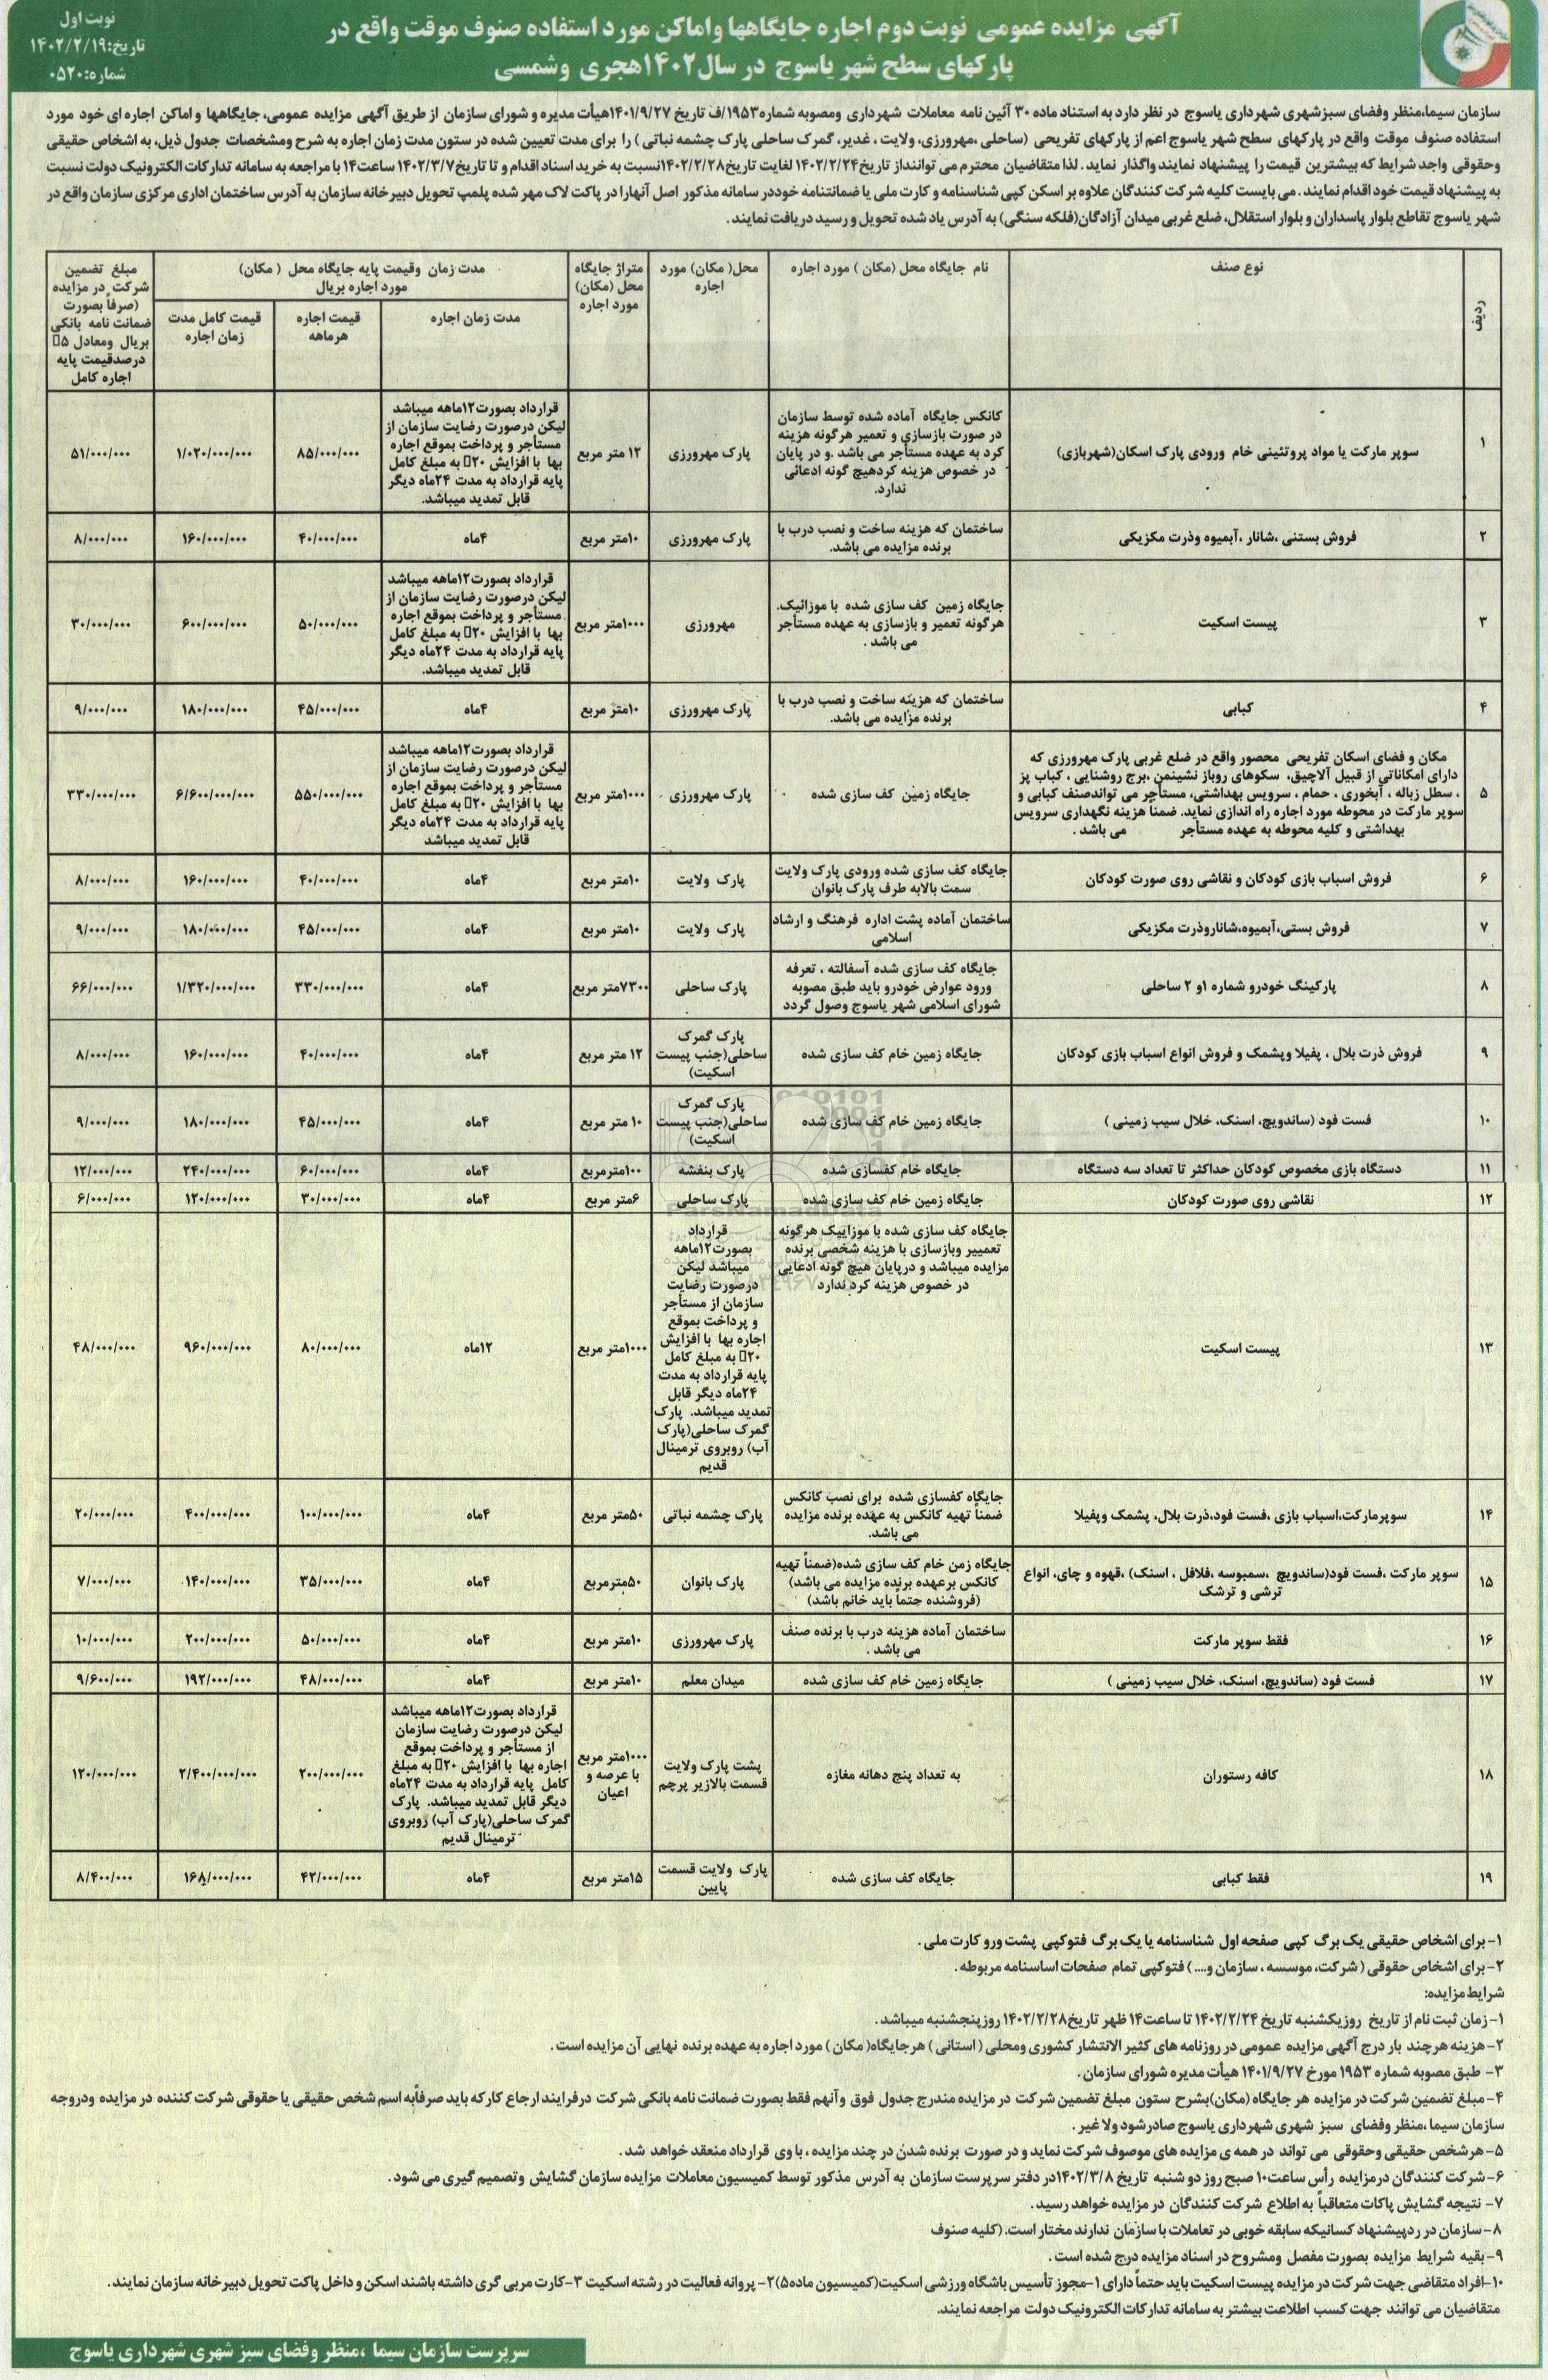 آگهی مزایده عمومی نوبت دوم اجاره جایگاهها واماکن مورد استفاده صنوف موقت واقع در
پارکهای سطح شهر یاسوج در سال۱۴۰۲هجری وشمسی
نوبت اول
تاریخ:۱۴۰۲/۲/۱۹
شماره:۰۵۲۰
سازمان سیما،منظر وفضای سبزشهری شهرداری یاسوج در نظر دارد به استناد ماده ۳۰ آئین نامه معاملات شهرداری ومصوبه شماره۱۹۵۳/ف تاریخ ۱۴۰۱/۹/۲۷هیأت مدیره و شورای سازمان از طریق آگهی مزایده عمومی، جایگاهها و اماکن اجاره ای خود مورد
استفاده صنوف موقت واقع در پارکهای سطح شهر یاسوج اعم از پارکهای تفریحی (ساحلی ،مهرورزی، ولایت ، غدیر، گمرک ساحلی پارک چشمه نباتی ) را برای مدت تعیین شده در ستون مدت زمان اجاره به شرح ومشخصات جدول ذیل، به اشخاص حقیقی
وحقوقی واجد شرایط که بیشترین قیمت را پیشنهاد نمایند واگذار نماید . لذا متقاضیان محترم می توانند از تاریخ۱۴۰۲/۲/۲۴ لغایت تاریخ۱۴۰۲/۲/۲۸نسبت به خرید اسناد اقدام و تا تاریخ۱۴۰۲/۳/۷ ساعت۱۴ با مراجعه به سامانه تدارکات الکترونیک دولت نسبت
به پیشنهاد قیمت خود اقدام نمایند . می بایست کلیه شرکت کنندگان علاوه بر اسکن کپی شناسنامه و کارت ملی یا ضمانتنامه خوددر سامانه مذکور اصل آنهارا در پاکت لاک مهر شده پلمپ تحویل دبیرخانه سازمان به آدرس ساختمان اداری مرکزی سازمان واقع در
شهر یاسوج تقاطع بلوار پاسداران و بلوار استقلال، ضلع غربی میدان آزادگان(فلکه سنگی) به آدرس یاد شده تحویل و رسید دریافت نمایند.
ردیف
نوع صنف
نام جایگاه محل (مکان ) مورد اجاره
محل( مکان) مورد
اجاره
متراژ جایگاه
محل (مکان)
مورد اجاره
مدت زمان وقیمت پایه جایگاه محل ( مکان)
مورد اجاره بریال
مدت زمان اجاره
قیمت اجاره
هرماهه
قیمت کامل مدت
زمان اجاره
مبلغ تضمین
شرکت در مزایده
(صرفاً بصورت
ضمانت نامه بانکی
بریال ومعادل ۵
درصدقیمت پایه
اجاره کامل
۱
سوپر مارکت یا مواد پروتئینی خام ورودی پارک اسکان(شهربازی)
کانکس جایگاه آماده شده توسط سازمان
در صورت بازسازی و تعمیر هرگونه هزینه
کرد به عهده مستأجر می باشد .و در پایان
در خصوص هزینه کردهیچ گونه ادعائی
ندارد.
پارک مهرورزی
۱۲ متر مربع
قرارداد بصورت۱۲ماهه میباشد
لیکن درصورت رضایت سازمان از
مستأجر و پرداخت بموقع اجاره
بها با افزایش ۲۰ به مبلغ کامل
پایه قرارداد به مدت ۲۴ماه دیگر
قابل تمدید میباشد.
۸۵/۰۰۰/۰۰۰
۱/۰۲۰/۰۰۰/۰۰۰
۵۱/۰۰۰/۰۰۰
۲
فروش بستنی ،شانار ،آبمیوه وذرت مکزیکی
ساختمان که هزینه ساخت و نصب درب با
برنده مزایده می باشد.
پارک مهرورزی
۱۰متر مربع
۴ماه
۴۰/۰۰۰/۰۰۰
۱۶۰/۰۰۰/۰۰۰
۸/۰۰۰/۰۰۰
۳
پیست اسکیت
جایگاه زمین کف سازی شده با موزائیک.
هرگونه تعمیر و بازسازی به عهده مستأجر
می باشد .
مهرورزی
۱۰۰۰متر مربع
قرارداد بصورت۱۲ماهه میباشد
لیکن درصورت رضایت سازمان از
مستأجر و پرداخت بموقع اجاره
بها با افزایش ۲۰ به مبلغ کامل
پایه قرارداد به مدت ۲۴ماه دیگر
قابل تمدید میباشد.
۵۰/۰۰۰/۰۰۰
۶۰۰/۰۰۰/۰۰۰
۳۰/۰۰۰/۰۰۰
۴
کبابی
ساختمان که هزینه ساخت و نصب درب با
برنده مزایده می باشد.
پارک مهرورزی
۱۰متر مربع
۴ماه
۴۵/۰۰۰/۰۰۰
۱۸۰/۰۰۰/۰۰۰
۹/۰۰۰/۰۰۰
۵
مکان و فضای اسکان تفریحی محصور واقع در ضلع غربی پارک مهرورزی که
دارای امکاناتی از قبیل آلاچیق، سکوهای روباز نشیمن ،برج روشنایی ، کباب پز
، سطل زباله ، آبخوری ، حمام ، سرویس بهداشتی، مستأجر می تواندصنف کبابی و
سوپر مارکت در محوطه مورد اجاره راه اندازی نماید. ضمناً هزینه نگهداری سرویس
بهداشتی و کلیه محوطه به عهده مستأجر می باشد .
جایگاه زمین کف سازی شده
پارک مهرورزی
۱۰۰۰متر مربع
قرارداد بصورت۱۲ماهه میباشد
لیکن درصورت رضایت سازمان از
مستأجر و پرداخت بموقع اجاره
بها با افزایش ۲۰ به مبلغ کامل
پایه قرارداد به مدت ۲۴ماه دیگر
قابل تمدید میباشد
۵۵۰/۰۰۰/۰۰۰
۶/۶۰۰/۰۰۰/۰۰۰
۳۳۰/۰۰۰/۰۰۰
۶
فروش اسباب بازی کودکان و نقاشی روی صورت کودکان
جایگاه کف سازی شده ورودی پارک ولایت
سمت بالابه طرف پارک بانوان
پارک ولایت
۱۰متر مربع
۴ماه
۴۰/۰۰۰/۰۰۰
۱۶۰/۰۰۰/۰۰۰
۸/۰۰۰/۰۰۰
۷
فروش بستی،آبمیوه،شاناروذرت مکزیکی
ساختمان آماده پشت اداره فرهنگ و ارشاد
اسلامی
پارک ولایت
۱۰متر مربع
۴ماه
۴۵/۰۰۰/۰۰۰
۱۸۰/۰۰۰/۰۰۰
۹/۰۰۰/۰۰۰
۸
پارکینگ خودرو شماره ۱و ۲ ساحلی
جایگاه کف سازی شده آسفالته ، تعرفه
ورود عوارض خودرو باید طبق مصوبه
شورای اسلامی شهر یاسوج وصول گردد
پارک ساحلی
۷۳۰۰متر مربع
۴ماه
۳۳۰/۰۰۰/۰۰۰
۱/۳۲۰/۰۰۰/۰۰۰
۶۶/۰۰۰/۰۰۰
۹
فروش ذرت بلال ، پفیلا وپشمک و فروش انواع اسباب بازی کودکان
جایگاه زمین خام کف سازی شده
پارک گمرک
ساحلی(جنب پیست
اسکیت)
۱۲ متر مربع
۴ماه
۴۰/۰۰۰/۰۰۰
۱۶۰/۰۰۰/۰۰۰
۸/۰۰۰/۰۰۰
۱۰
فست فود (ساندویچ، اسنک، خلال سیب زمینی )
جایگاه زمین خام کف سازی شده
پارک گمرک
ساحلی(جنب پیست
اسکیت)
۱۰ متر مربع
۴ماه
۴۵/۰۰۰/۰۰۰
۱۸۰/۰۰۰/۰۰۰
۹/۰۰۰/۰۰۰
۱۱
دستگاه بازی مخصوص کودکان حداکثر تا تعداد سه دستگاه
جایگاه خام کفسازی شده
پارک بنفشه
۱۰۰مترمربع
۴ماه
۶۰/۰۰۰/۰۰۰
۲۴۰/۰۰۰/۰۰۰
۱۲/۰۰۰/۰۰۰
۱۲
نقاشی روی صورت کودکان
جایگاه زمین خام کف سازی شده
پارک ساحلی
۶متر مربع
۴ماه
۳۰/۰۰۰/۰۰۰
۱۲۰/۰۰۰/۰۰۰
۶/۰۰۰/۰۰۰
ParsNamadData
۱۳
پیست اسکیت
جایگاه کف سازی شده با موزاییک هرگونه
تعمییر وبازسازی با هزینه شخصی برنده
مزایده میباشد و درپایان هیچ گونه ادعایی
در خصوص هزینه کرد ندارد
قرارداد
بصورت۱۲ماهه
میباشد لیکن
درصورت رضایت
سازمان از مستأجر
و پرداخت بموقع
اجاره بها با افزایش
۲۰ به مبلغ کامل
پایه قرارداد به مدت
۲۴ماه دیگر قابل
تمدید میباشد. پارک
گمرک ساحلی(پارک
آب) روبروی ترمینال
قدیم
۱۰۰۰متر مربع
۱۲ماه
۸۰/۰۰۰/۰۰۰
۹۶۰/۰۰۰/۰۰۰
۴۸/۰۰۰/۰۰۰
۱۴
سوپرمارکت،اسباب بازی ،فست فود،ذرت بلال، پشمک وپفیلا
جایگاه کفسازی شده برای نصب کانکس
ضمناً تهیه کانکس به عهده برنده مزایده
می باشد.
پارک چشمه نباتی
۵۰متر مربع
۴ماه
۱۰۰/۰۰۰/۰۰۰
۴۰۰/۰۰۰/۰۰۰
۲۰/۰۰۰/۰۰۰
۱۵
سوپر مارکت ،فست فود(ساندویچ ،سمبوسه ،فلافل ، اسنک) ،قهوه و چای، انواع
ترشی و ترشک
جایگاه زمن خام کف سازی شده(ضمناً تهیه
کانکس برعهده برنده مزایده می باشد)
(فروشنده حتماً باید خانم باشد)
پارک بانوان
۵۰مترمربع
۴ماه
۳۵/۰۰۰/۰۰۰
۱۴۰/۰۰۰/۰۰۰
۷/۰۰۰/۰۰۰
۱۶
فقط سوپر مارکت
ساختمان آماده هزینه درب با برنده صنف
می باشد .
پارک مهرورزی
۱۰متر مربع
۴ماه
۵۰/۰۰۰/۰۰۰
۲۰۰/۰۰۰/۰۰۰
۱۰/۰۰۰/۰۰۰
۱۷
فست فود (ساندویچ، اسنک، خلال سیب زمینی )
جایگاه زمین خام کف سازی شده
میدان معلم
۱۰متر مربع
۴ماه
۴۸/۰۰۰/۰۰۰
۱۹۲/۰۰۰/۰۰۰
۹/۶۰۰/۰۰۰
۱۸
کافه رستوران
به تعداد پنج دهانه مغازه
پشت پارک ولایت
قسمت بالازیر پرچم
۱۰۰۰متر مربع
با عرصه و
اعیان
قرارداد بصورت۱۲ماهه میباشد
لیکن درصورت رضایت سازمان
از مستأجر و پرداخت بموقع
اجاره بها با افزایش ۲۰ به مبلغ
کامل پایه قرارداد به مدت ۲۴ماه
دیگر قابل تمدید میباشد. پارک
گمرک ساحلی(پارک آب) روبروی
ترمینال قدیم
۲۰۰/۰۰۰/۰۰۰
۲/۴۰۰/۰۰۰/۰۰۰
۱۲۰/۰۰۰/۰۰۰
۱۹
فقط کبابی
جایگاه کف سازی شده
پارک ولایت قسمت
پایین
۱۵متر مربع
۴ماه
۴۲/۰۰۰/۰۰۰
۱۶۸/۰۰۰/۰۰۰
۸/۴۰۰/۰۰۰
۱- برای اشخاص حقیقی یک برگ کپی صفحه اول شناسنامه یا یک برگ فتوکپی پشت ورو کارت ملی .
۲- برای اشخاص حقوقی ( شرکت، موسسه ، سازمان و.... ) فتوکپی تمام صفحات اساسنامه مربوطه .
شرایط مزایده:
۱- زمان ثبت نام از تاریخ روزیکشنبه تاریخ ۱۴۰۲/۲/۲۴ تا ساعت۱۴ ظهر تاریخ۱۴۰۲/۲/۲۸ روز پنجشنبه میباشد .
۲- هزینه هرچند بار درج آگهی مزایده عمومی در روزنامه های کثیر الانتشار کشوری ومحلی ( استانی ) هرجایگاه( مکان ) مورد اجاره به عهده برنده نهایی آن مزایده است .
۳- طبق مصوبه شماره ۱۹۵۳ مورخ ۱۴۰۱/۹/۲۷ هیأت مدیره شورای سازمان .
۴- مبلغ تضمین شرکت در مزایده هر جایگاه (مکان)بشرح ستون مبلغ تضمین شرکت در مزایده مندرج جدول فوق وآنهم فقط بصورت ضمانت نامه بانکی شرکت درفرایند ارجاع کارکه باید صرفاًبه اسم شخص حقیقی یا حقوقی شرکت کننده در مزایده ودروجه
سازمان سیما ،منظر وفضای سبز شهری شهرداری یاسوج صادرشود ولا غیر .
۵- هرشخص حقیقی وحقوقی می تواند در همه ی مزایده های موصوف شرکت نماید و در صورت برنده شدن در چند مزایده ، با وی قرارداد منعقد خواهد شد .
۶- شرکت کنندگان درمزایده رأس ساعت۱۰ صبح روز دوشنبه تاریخ ۱۴۰۲/۳/۸در دفتر سرپرست سازمان به آدرس مذکور توسط کمیسیون معاملات مزایده سازمان گشایش وتصمیم گیری می شود .
۷- نتیجه گشایش پاکات متعاقباً به اطلاع شرکت کنندگان در مزایده خواهد رسید .
۸- سازمان در ردپیشنهاد کسانیکه سابقه خوبی در تعاملات با سازمان ندارند مختار است. (کلیه صنوف
۹- بقیه شرایط مزایده بصورت مفصل ومشروح در اسناد مزایده درج شده است .
۱۰-افراد متقاضی جهت شرکت در مزایده پیست اسکیت باید حتماً دارای ۱-مجوز تأسیس باشگاه ورزشی اسکیت(کمیسیون ماده۵) ۲- پروانه فعالیت در رشته اسکیت ۳-کارت مربی گری داشته باشند اسکن و داخل پاکت تحویل دبیرخانه سازمان نمایند.
متقاضیان می توانند جهت کسب اطلاعت بیشتر به سامانه تدارکات الکترونیک دولت مراجعه نمایند.
سرپرست سازمان سیما ،منظر وفضای سبز شهری شهرداری یاسوج